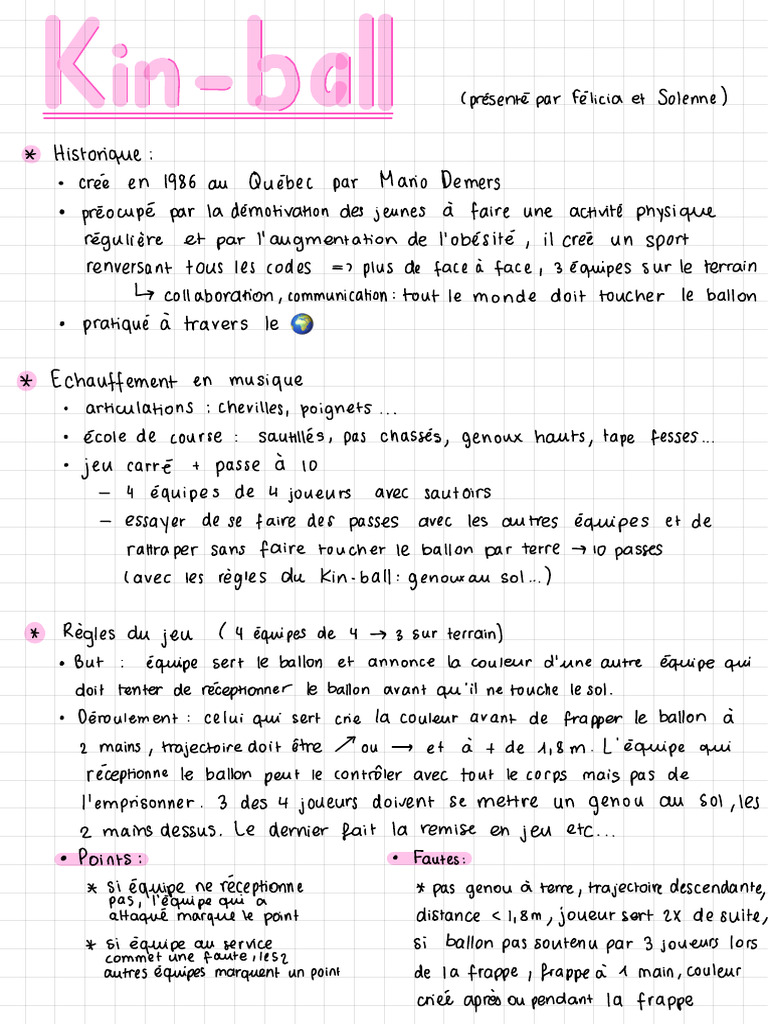 Kin-ball
(présenté par Félicia et Solenne)
* Historique :
• créé en 1986 au Québec par Mario Demers
• préocupé par la démotivation des jeunes à faire une activité physique
régulière et par l'augmentation de l'obésité, il creé un sport
renversant tous les codes => plus de face à face, 3 équipes sur le terrain
↳ collaboration, communication : tout le monde doit toucher le ballon
• pratiqué à travers le 🌍
* Echauffement en musique
• articulations : chevilles, poignets...
• école de course : sautillés, pas chassés, genoux hauts, tape fesses...
• jeu carré + passe à 10
– 4 équipes de 4 joueurs avec sautoirs
– essayer de se faire des passes avec les autres équipes et de
rattraper sans faire toucher le ballon par terre → 10 passes
(avec les règles du Kin-ball : genou au sol...)
* Règles du jeu (4 équipes de 4 → 3 sur terrain)
• But : équipe sert le ballon et annonce la couleur d'une autre équipe qui
doit tenter de réceptionner le ballon avant qu'il ne touche le sol.
• Déroulement : celui qui sert crie la couleur avant de frapper le ballon à
2 mains, trajectoire doit être ↗ ou → et à + de 1,8 m. L'équipe qui
réceptionne le ballon peut le contrôler avec tout le corps mais pas de
l'emprisonner. 3 des 4 joueurs doivent se mettre un genou au sol, les
2 mains dessus. Le dernier fait la remise en jeu etc...
• Points :
* si équipe ne réceptionne
pas, l'équipe qui a
attaqué marque le point
* si équipe au service
commet une faute, les 2
autres équipes marquent un point
• Fautes :
* pas genou à terre, trajectoire descendante,
distance < 1,8m, joueur sert 2X de suite,
si ballon pas soutenu par 3 joueurs lors
de la frappe, frappe à 1 main, couleur
criée après ou pendant la frappe